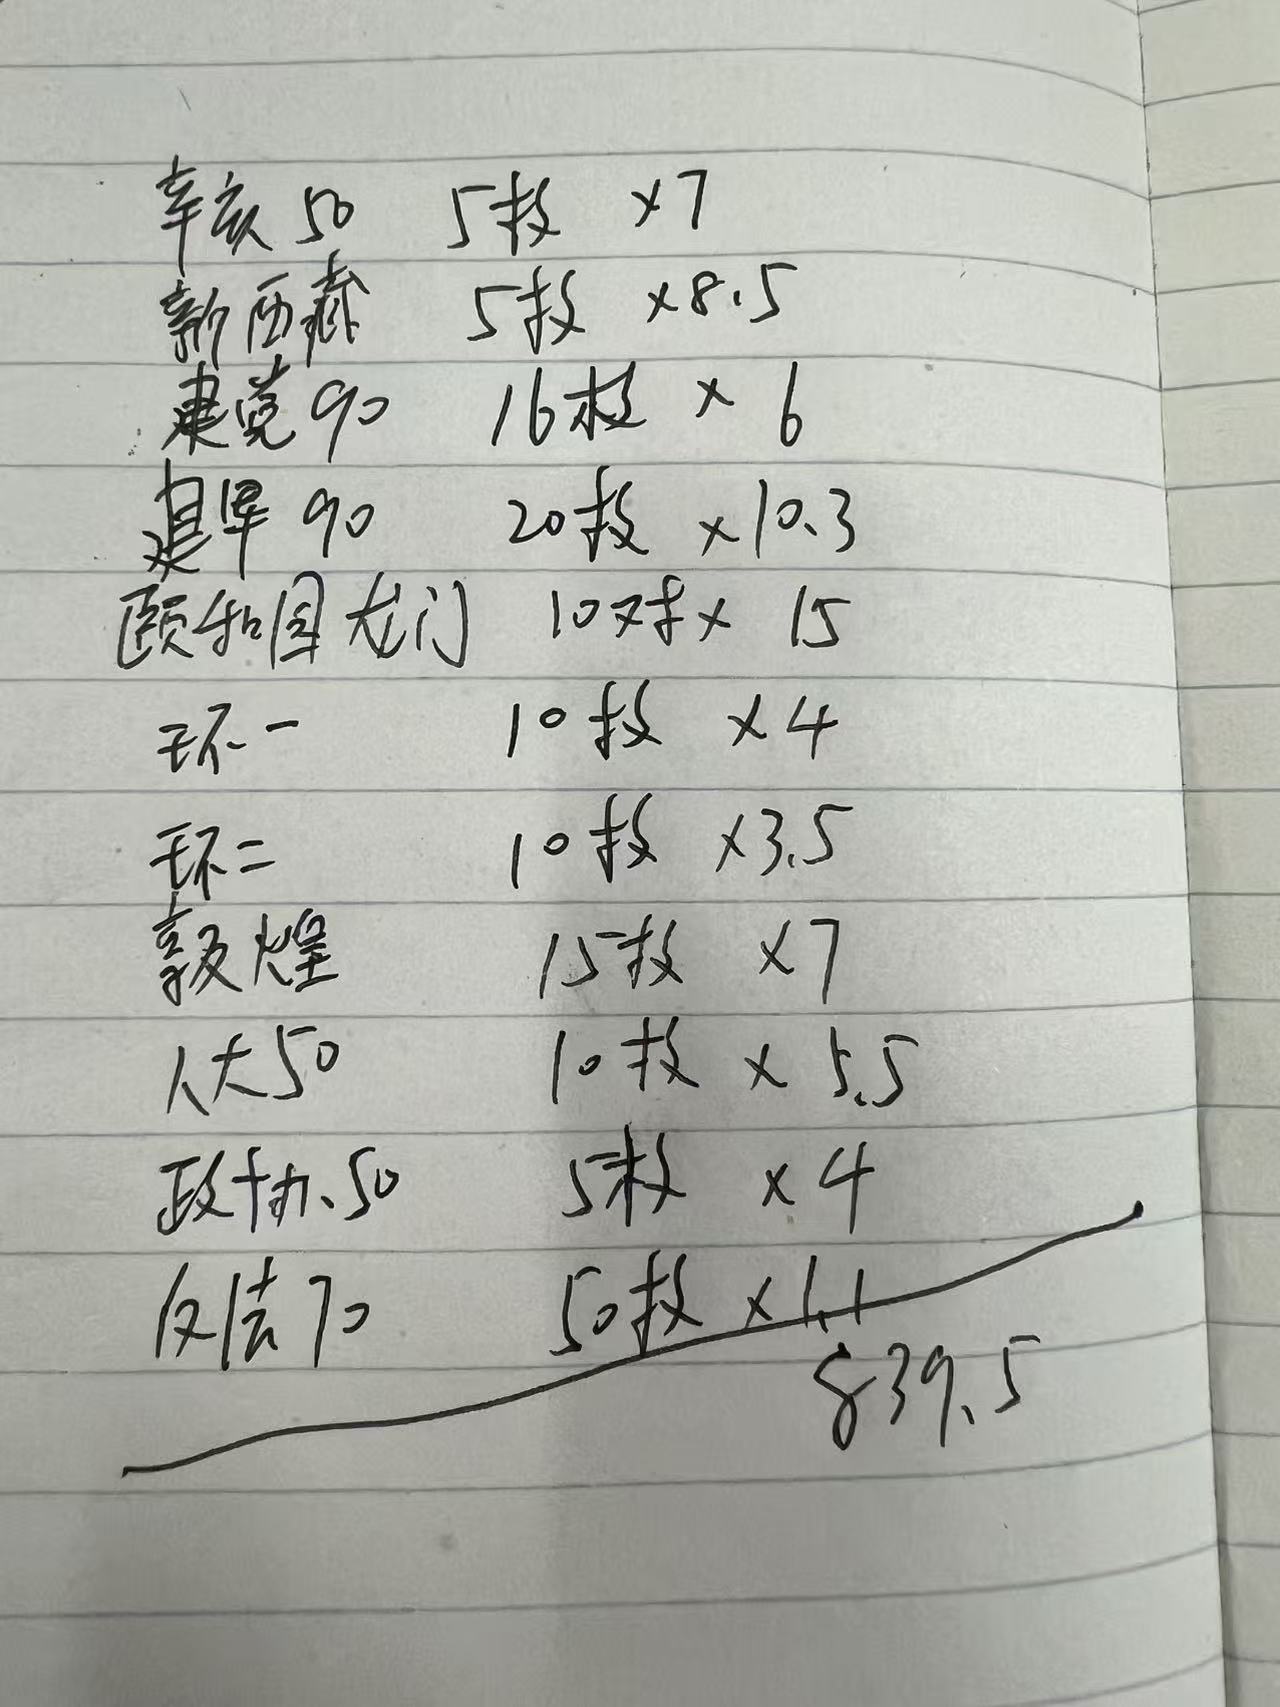 辛亥50 5枚 ×7
新西藏 5枚 ×8.5
建党90 16枚 × 6
建军90 20枚 ×10.3
颐和园龙门 10对× 15
环一 10枚 ×4
环二 10枚 ×3.5
敦煌 15枚 ×7
人大50 10枚 × 5.5
政协.50 5枚 ×4
反法70 50枚 ×1.1
839.5